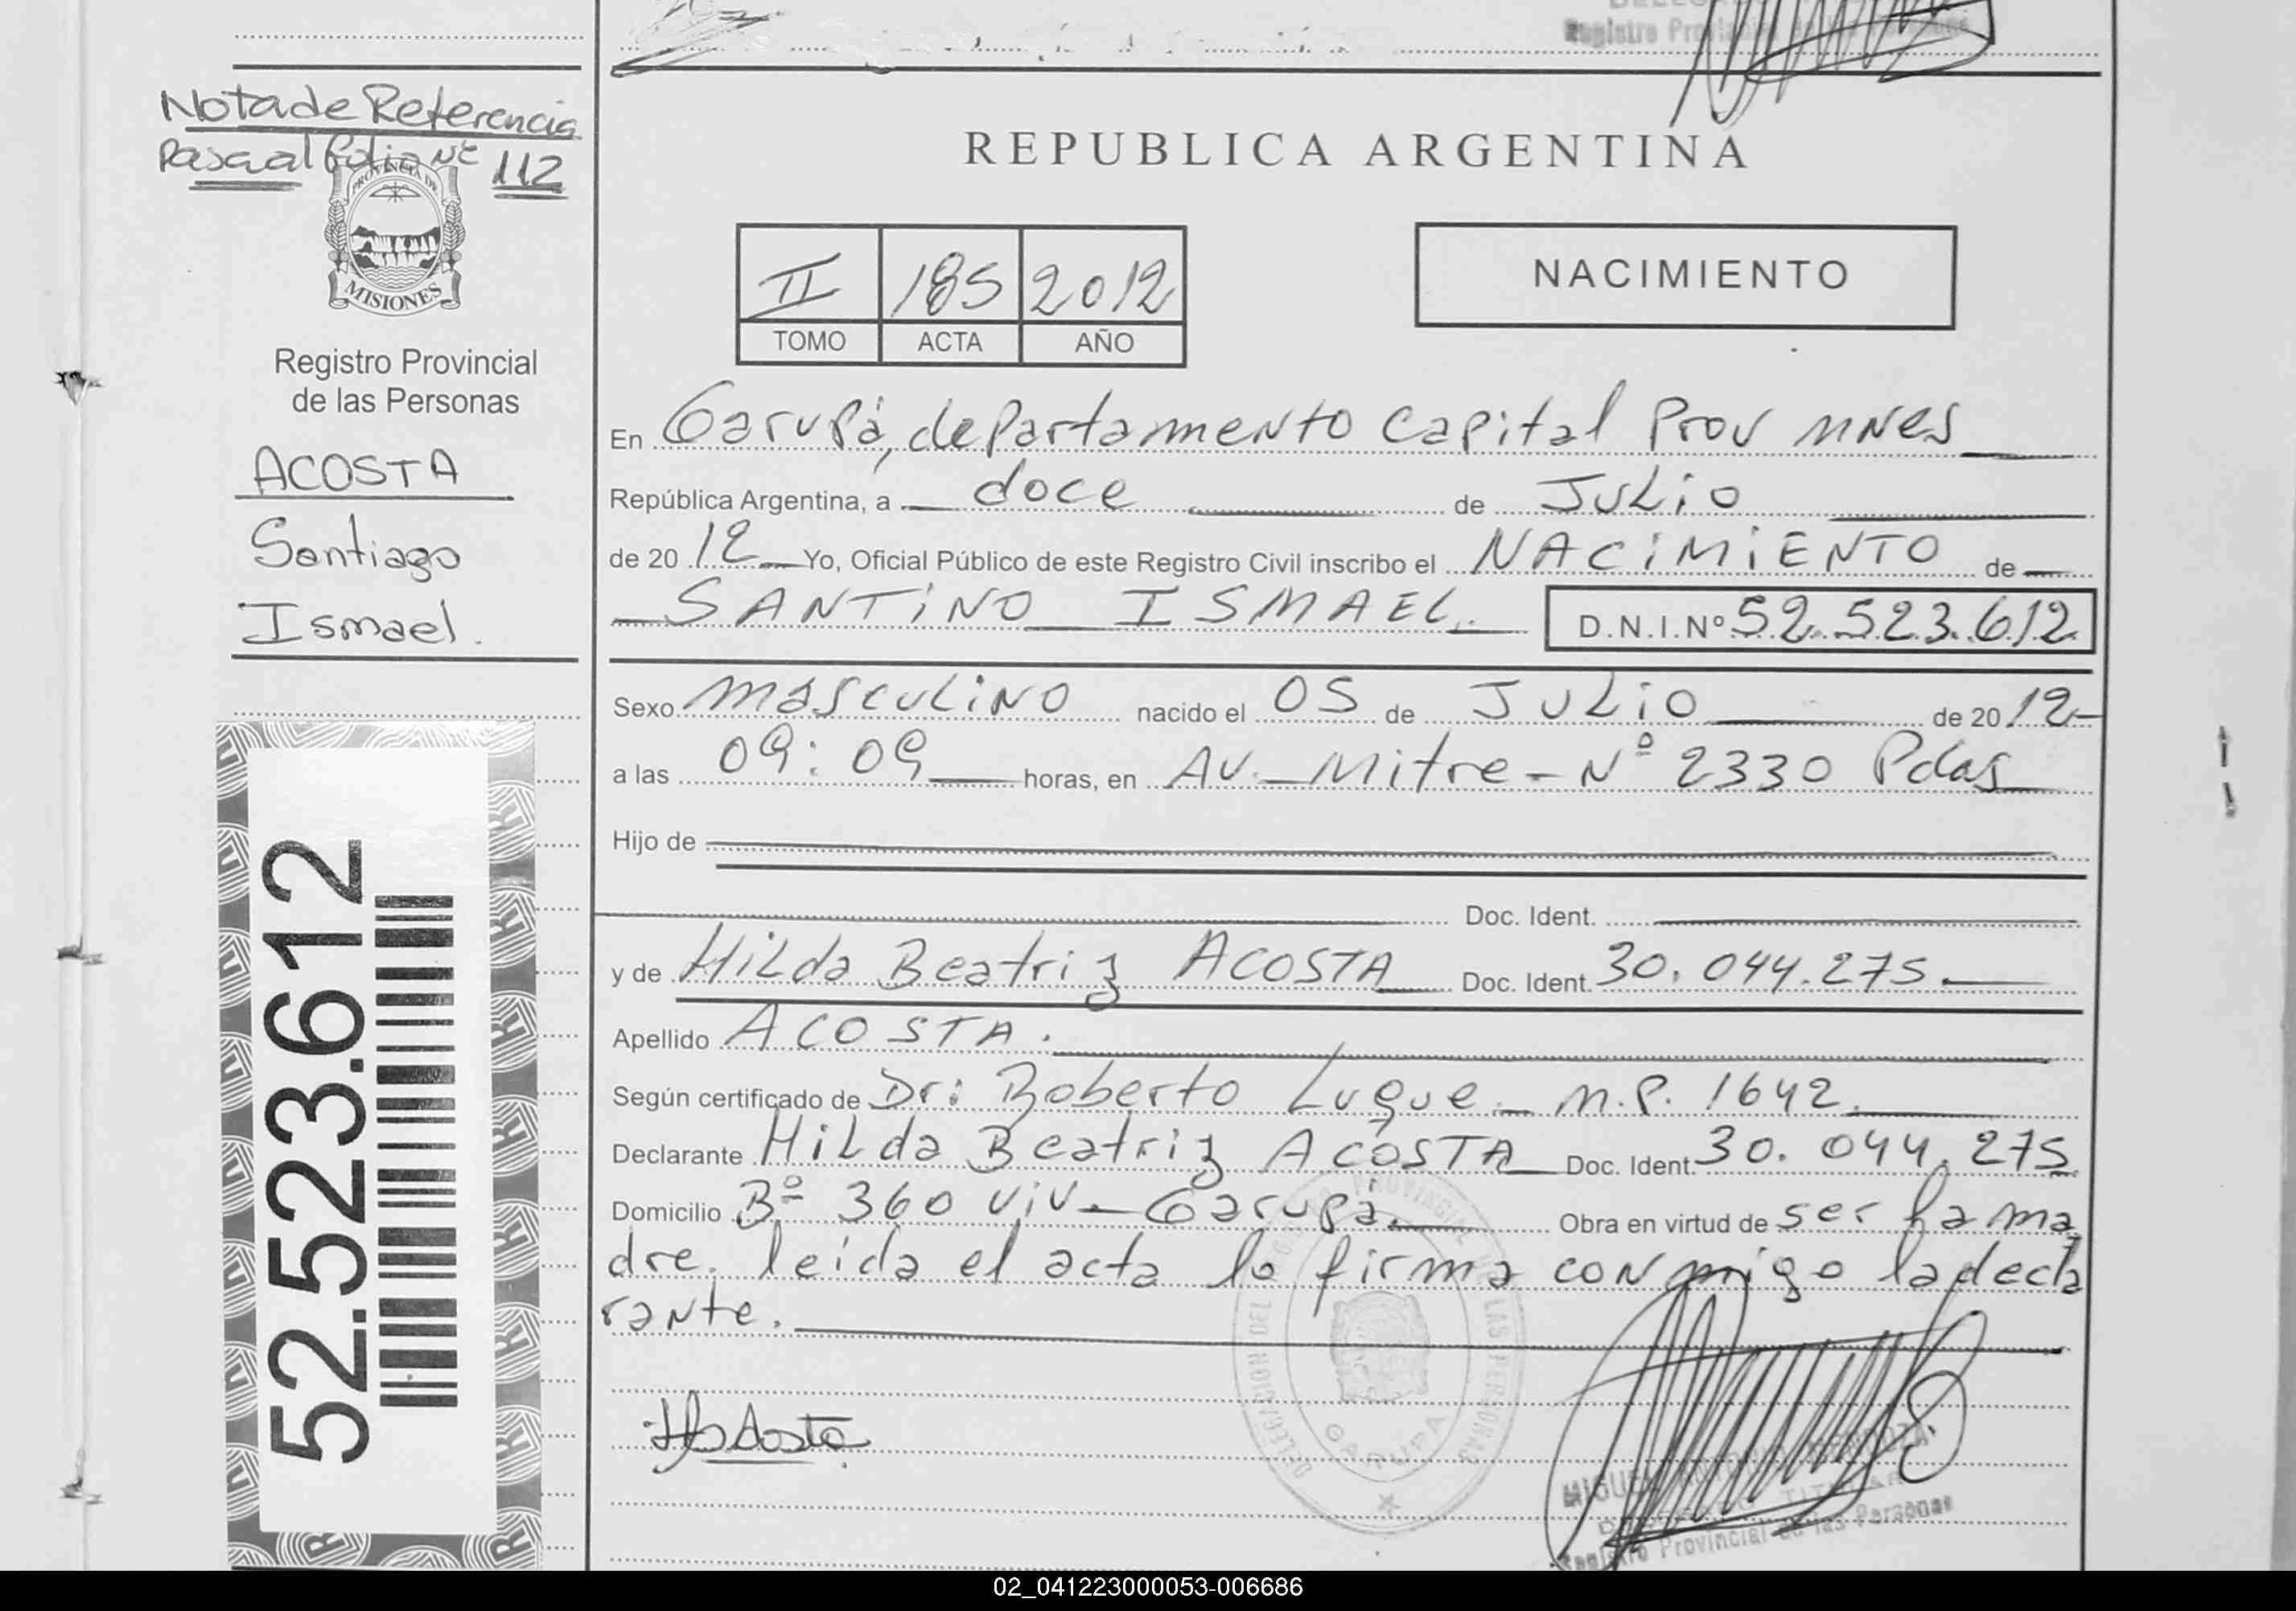 Registro Provincial de las Personas
Nota de Referencia
Pasa al folio Nº 112
PROVINCIA DE
MISIONES
Registro Provincial
de las Personas
ACOSTA
Santiago
Ismael.
52.523.612
REPUBLICA ARGENTINA
II 185 2012
TOMO ACTA AÑO
NACIMIENTO
En Garupá, departamento Capital Prov MNes
República Argentina, a doce de Julio
de 20 12 Yo, Oficial Público de este Registro Civil inscribo el NACIMIENTO de
SANTINO ISMAEL. D.N.I.Nº 52.523.612
Sexo masculino nacido el 05 de Julio de 20 12
a las 09:09 horas, en Av. Mitre - Nº 2330 Pdas
Hijo de
Doc. Ident.
y de Hilda Beatriz ACOSTA Doc. Ident. 30.044.275.
Apellido ACOSTA.
Según certificado de Dr: Roberto Luque. M.P. 1642.
Declarante Hilda Beatriz ACOSTA Doc. Ident. 30.044.275
Domicilio Bº 360 viv - Garupá. Obra en virtud de ser la ma
dre. leida el acta lo firma conmigo la decla
rante.
HbAcosta
DELEGACION DEL REGISTRO PROVINCIAL DE LAS PERSONAS
GARUPA
MIGUEL ANTONIO MENDOZA
TITULAR
Registro Provincial de las Personas
02_041223000053-006686